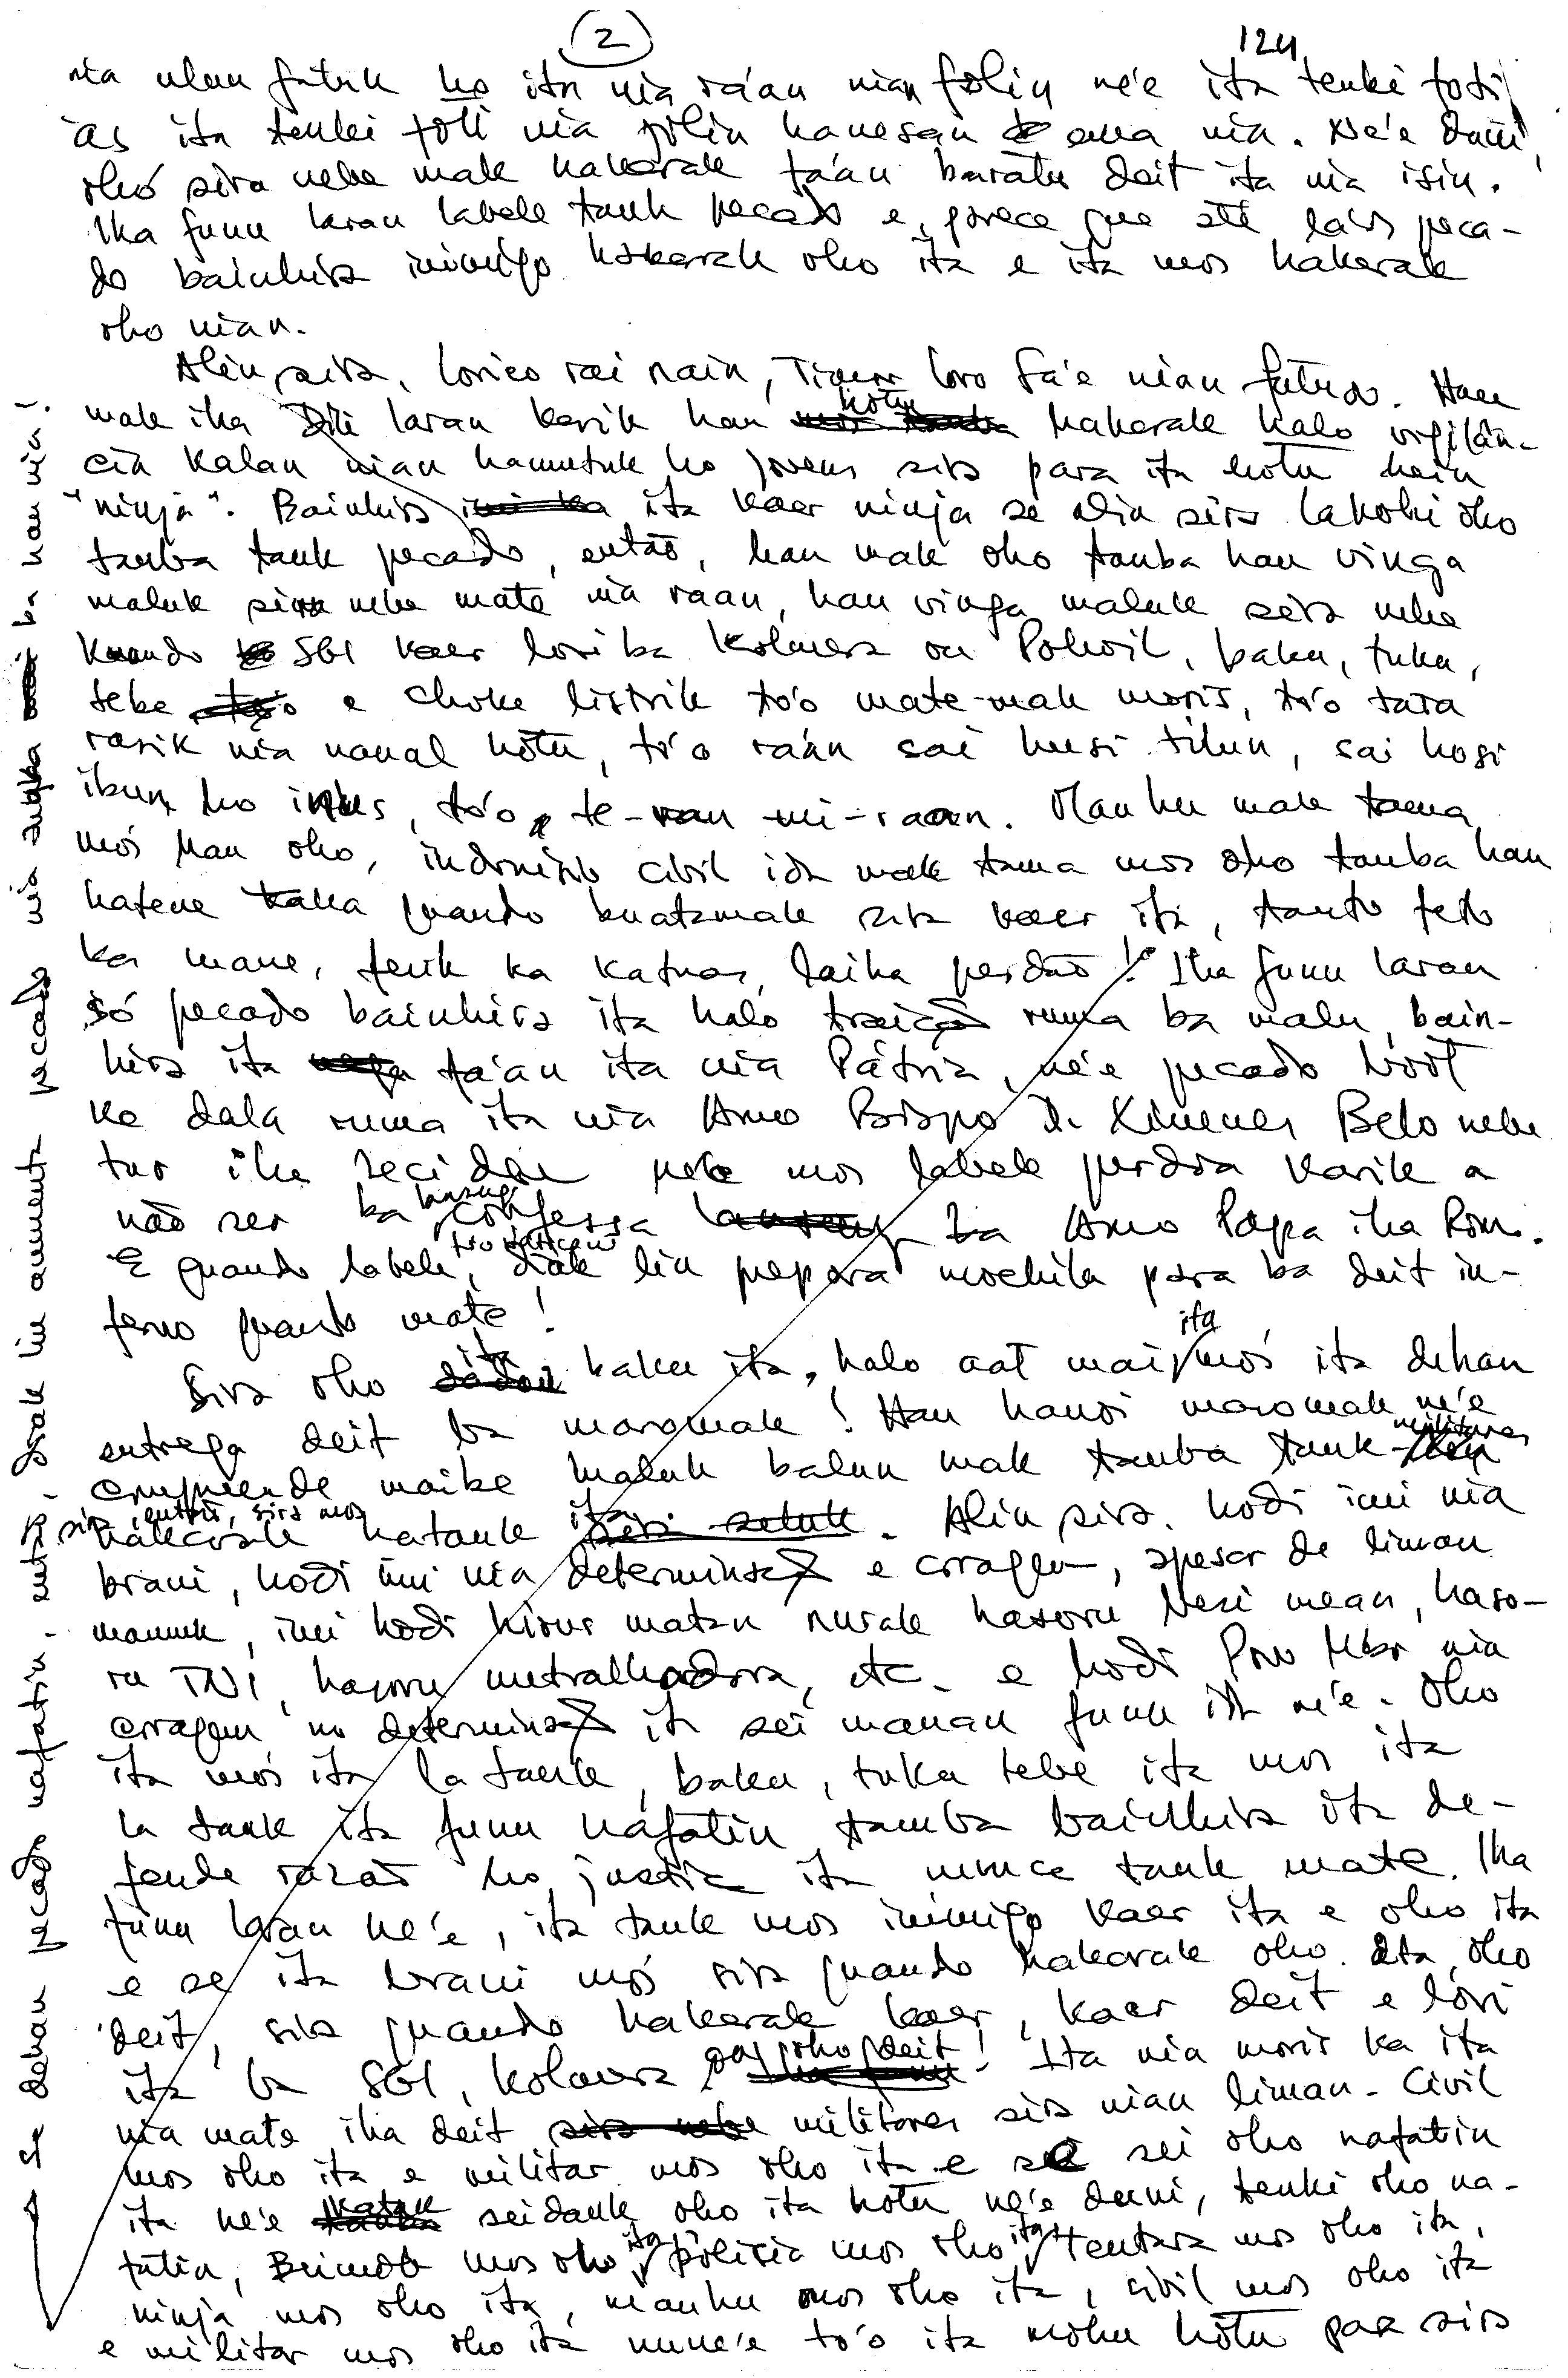 2
124
nia ulun fatuk ho ita nia rá'an nian folin ne'e ita tenki foti
ás ita tenki foti nia folin hanesan ema nia. Ne'e duni,
ohó sira nebe mak hakarak fa'an baratu deit ita nia isin.
Iha funu laran labele tauk pecado e, parece que até laos peca-
do bainhira inimigo hakarak oho ita e ita mos hakarak
oho nian.
Alin sira, lorico rai nain, Timor loro Sa'e nian futuro. Hau
mak iha Dili laran karik hau hotu hakarak halo vigilân-
cia kalan nian hamutuk ho jovens sira para ita hotu hein
"ninja". Bainhira ita kaer ninja se alin sira lakohi oho
tamba tauk pecado, então, hau mak oho tamba hau vinga
maluk sira nebe mate nia raan, hau vinga maluk sira nebe
kuando SGI kaer lori ba Kolmera ou Polwil, baku, tuku,
tebe e choke listrik to'o mate-mak moris, to'o tara
rasik nia naual hotu, to'o ráan sai husi tilun, sai hosi
ibun ho inus, to'o te-raan mi-raan. Mauhu mak tama
mós hau oho, indonésio civil ida mak tama mos oho tamba hau
hatene katak quando buatamak sira kaer ita, tanto feto
ka mane, ferik ka katuas, laiha perdão! Iha funu laran
só pecado bainhira ita halo traição ruma ba malu, bain-
hira ita fa'an ita nia Pátria, ne'e pecado bóot
ke dala ruma ita nia Amo Bispo D. Ximenes Belo nebe
tur iha Lecidere nebe mos labele perdoa karik a
não ser ba confessa ba Amo Papa iha Roma.
E quando labele, diak liu prepara mochila para ba deit in-
ferno quando mate!
Sira oho ita baku ita, halo aat mai ita mós ita dehan
entrega deit ba maromak! Hau hanoi maromak ne'e
compreende maibe maluk balun mak tamba tauk militares
sira, então, sira mos
hakarak hatauk ita. Alin sira, hodi imi nia
brani, hodi imi nia determinação e coragem, apesar de liman
mamuk, imi hodi hirus matan nurak hasoru besi mean, haso-
ru TNI, hasoru metralhadora, etc. e hodi Povo Mbr nia
coragem no determinação ita sei manan funu ida ne'e. Oho
ita mós ita la tauk, baku, tuku tebe ita mos ita
la tauk ita funu nafatin tamba bainhira ita de-
fende razão ho justiça ita nunca tauk mate. Iha
funu laran ne'e, ita tauk mos inimigo kaer ita e oho ita
e se ita brani mós sira quando hakarak oho ita, oho
deit, sira quando hakarak kaer, kaer deit e lori
ita ba SGI, Kolmera ou oho deit! Ita nia moris ka ita
nia mate iha deit militares sira nian liman. Civil
mos oho ita e militar mos oho ita e sei oho nafatin
ita ne'e katak seidauk oho ita hotu ne'e duni, tenki oho na-
fatin, Brimob mos oho ita, polisia mos oho ita, tentara mos oho ita,
ninja mos oho ita, mauhu mos oho ita, civil mos oho ita
e militar mos oho ita nune'e to'o ita mohu hotu par sira
Se dehan pecado nafatin, entao, diak liu aumenta pecado nia ba hau nia!